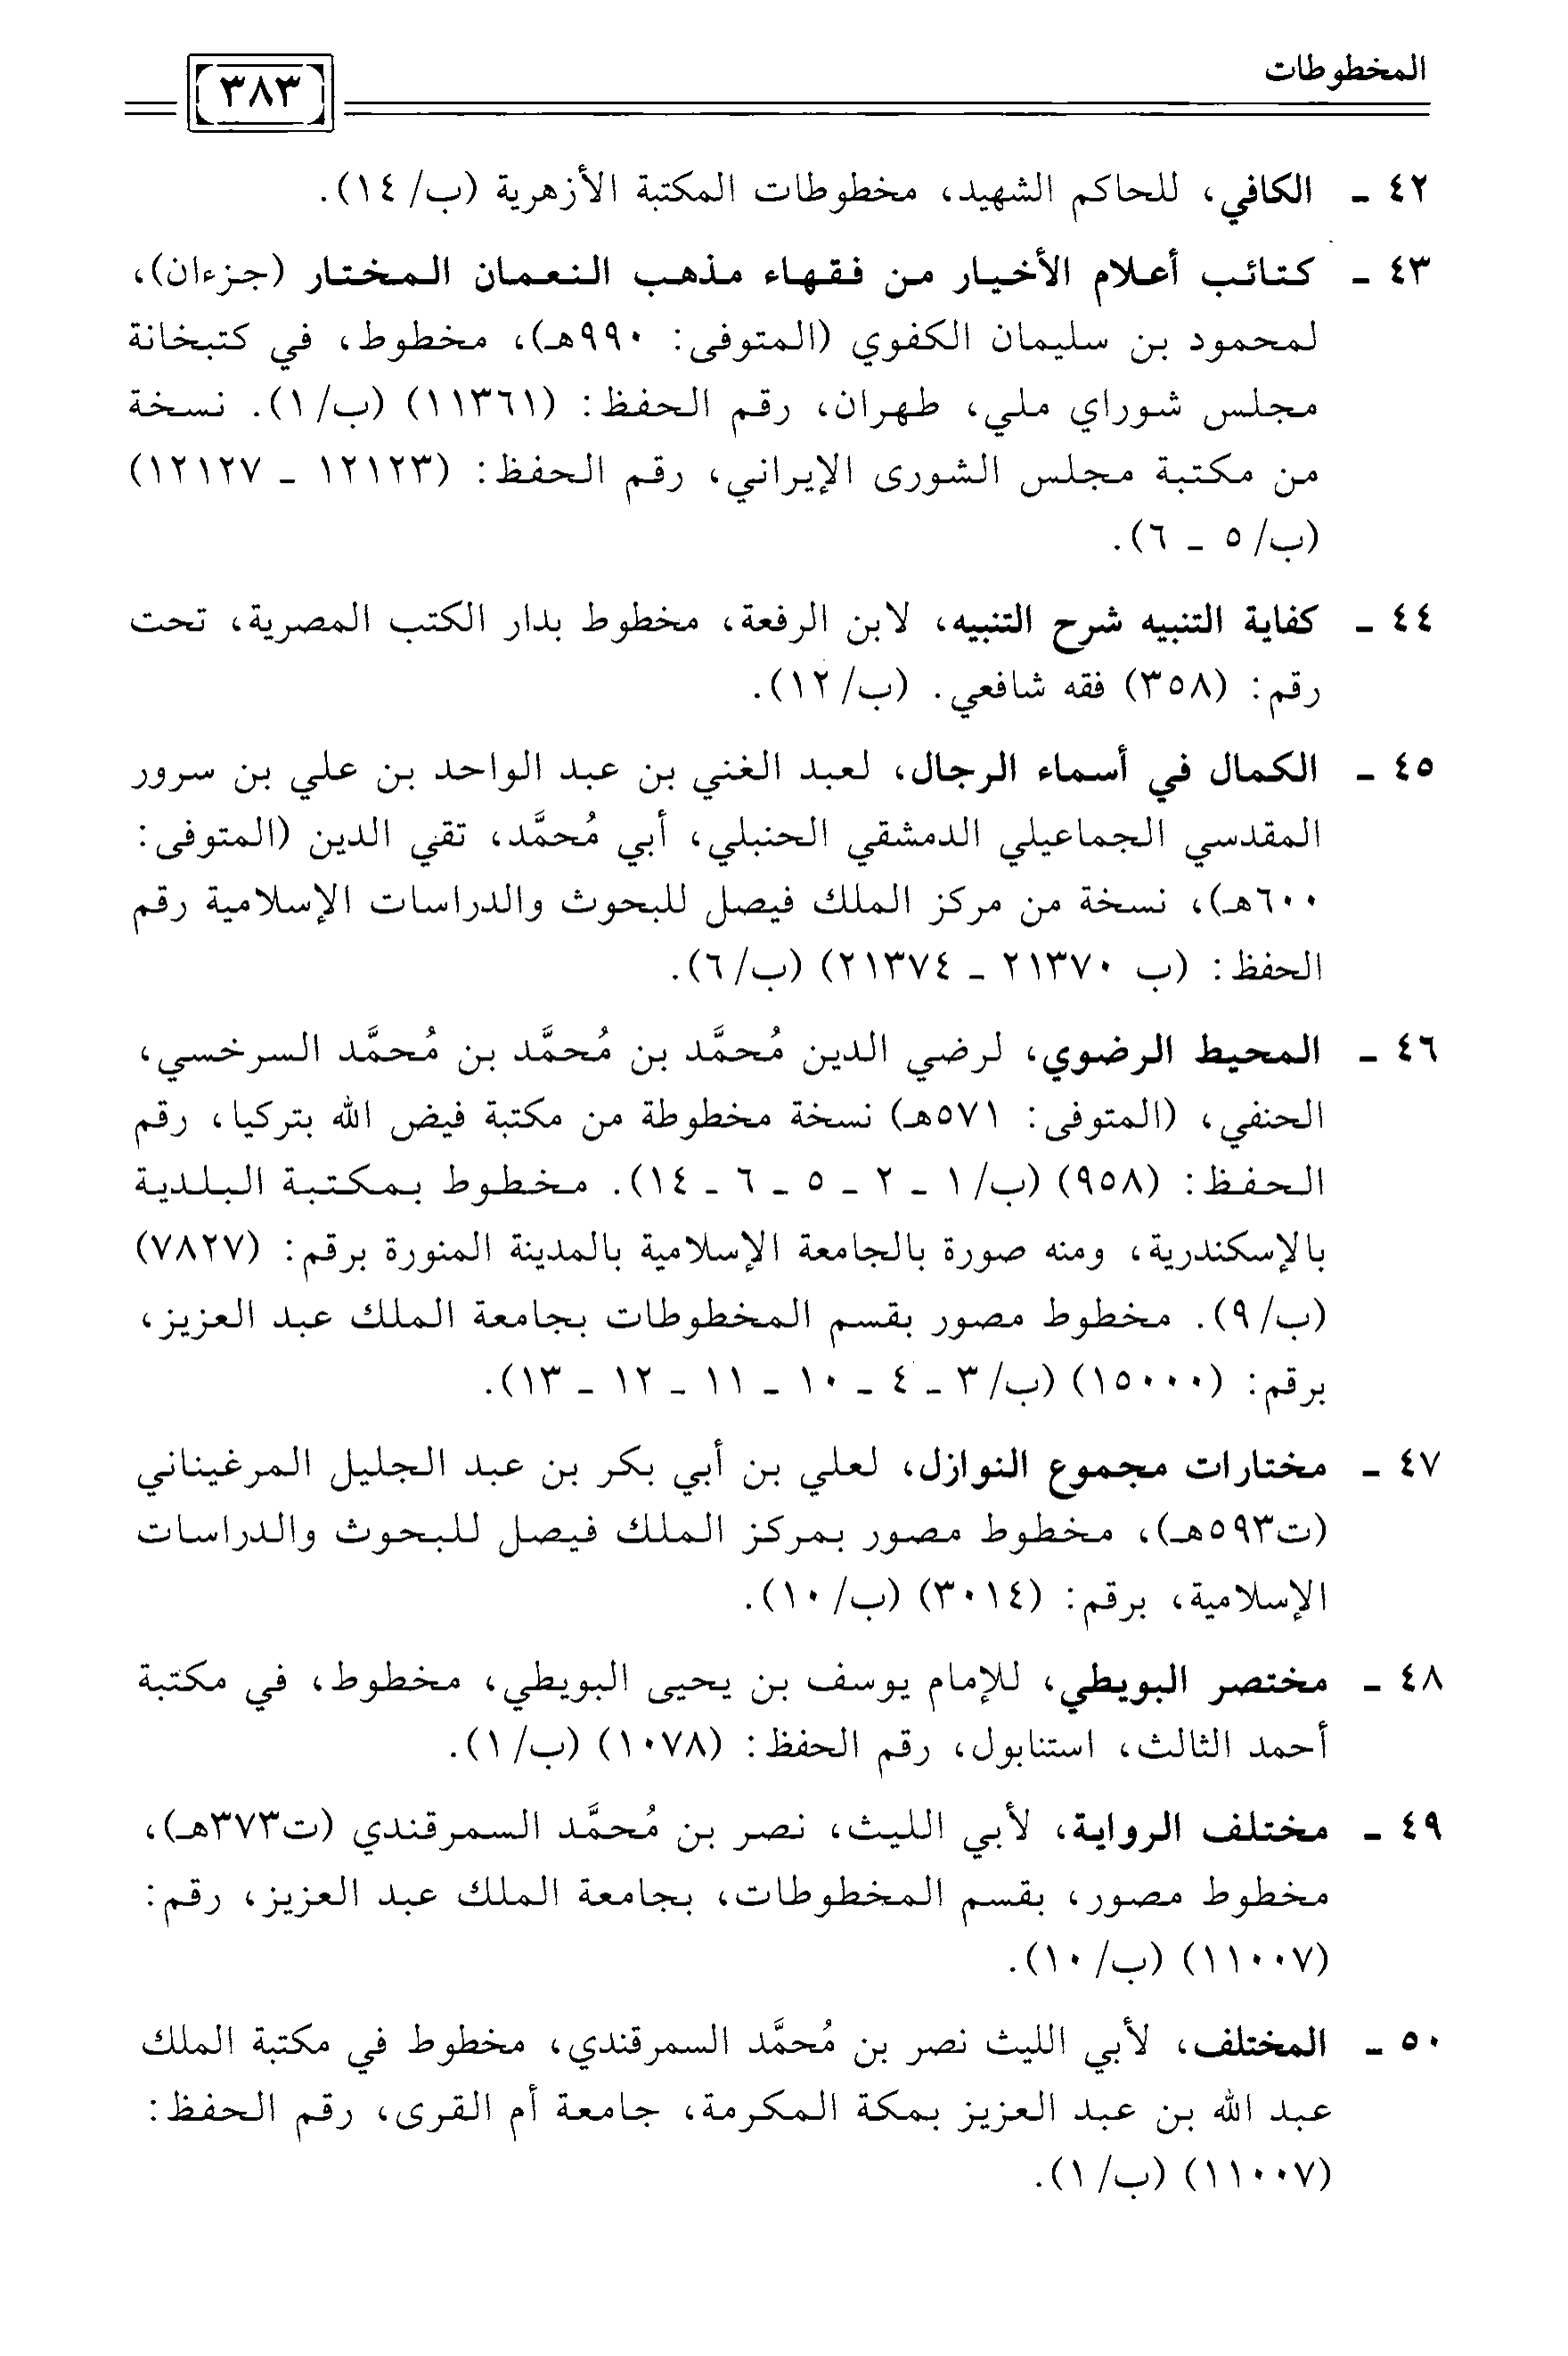 المخطوطات
٣٨٣
٤٢ ـ الكافي، للحاكم الشهيد، مخطوطات المكتبة الأزهرية (ب/ ١٤).
٤٣ ـ كتائب أعلام الأخيار من فقهاء مذهب النعمان المختار (جزءان)،
لمحمود بن سليمان الكفوي (المتوفى: ٩٩٠هـ)، مخطوط، في كتبخانة
مجلس شوراي ملي، طهران، رقم الحفظ: (١١٣٦١) (ب/ ١). نسخة
من مكتبة مجلس الشورى الإيراني، رقم الحفظ: (١٢١٢٣ ـ ١٢١٢٧)
(ب/ ٥ ـ ٦).
٤٤ ـ كفاية التنبيه شرح التنبيه، لابن الرفعة، مخطوط بدار الكتب المصرية، تحت
رقم: (٣٥٨) فقه شافعي. (ب/ ١٢).
٤٥ ـ الكمال في أسماء الرجال، لعبد الغني بن عبد الواحد بن علي بن سرور
المقدسي الجماعيلي الدمشقي الحنبلي، أبي مُحمَّد، تقي الدين (المتوفى:
٦٠٠هـ)، نسخة من مركز الملك فيصل للبحوث والدراسات الإسلامية رقم
الحفظ: (ب ٢١٣٧٠ ـ ٢١٣٧٤) (ب/ ٦).
٤٦ ـ المحيط الرضوي، لرضي الدين مُحمَّد بن مُحمَّد بن مُحمَّد السرخسي،
الحنفي، (المتوفى: ٥٧١هـ) نسخة مخطوطة من مكتبة فيض الله بتركيا، رقم
الحفظ: (٩٥٨) (ب/ ١ ـ ٢ ـ ٥ ـ ٦ ـ ١٤). مخطوط بمكتبة البلدية
بالإسكندرية، ومنه صورة بالجامعة الإسلامية بالمدينة المنورة برقم: (٧٨٢٧)
(ب/ ٩). مخطوط مصور بقسم المخطوطات بجامعة الملك عبد العزيز،
برقم: (١٥٠٠٠) (ب/ ٣ ـ ٤ ـ ١٠ ـ ١١ ـ ١٢ ـ ١٣).
٤٧ ـ مختارات مجموع النوازل، لعلي بن أبي بكر بن عبد الجليل المرغيناني
(ت٥٩٣هـ)، مخطوط مصور بمركز الملك فيصل للبحوث والدراسات
الإسلامية، برقم: (٣٠١٤) (ب/ ١٠).
٤٨ ـ مختصر البويطي، للإمام يوسف بن يحيى البويطي، مخطوط، في مكتبة
أحمد الثالث، استنابول، رقم الحفظ: (١٠٧٨) (ب/ ١).
٤٩ ـ مختلف الرواية، لأبي الليث، نصر بن مُحمَّد السمرقندي (ت٣٧٣هـ)،
مخطوط مصور، بقسم المخطوطات، بجامعة الملك عبد العزيز، رقم:
(١١٠٠٧) (ب/ ١٠).
٥٠ ـ المختلف، لأبي الليث نصر بن مُحمَّد السمرقندي، مخطوط في مكتبة الملك
عبد الله بن عبد العزيز بمكة المكرمة، جامعة أم القرى، رقم الحفظ:
(١١٠٠٧) (ب/ ١).